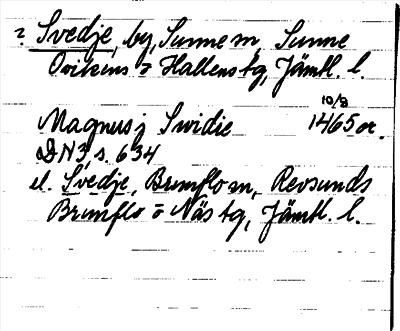 ? Svedje, by, Sunne sn, Sunne
Ovikens o Hallens tg, Jämtl. l.
10/8
Magnus j Swidie 1465 or.
DN 3, s. 634
el. Svedje, Brunflo sn, Revsunds
Brunflo o Näs tg, Jämtl. l.